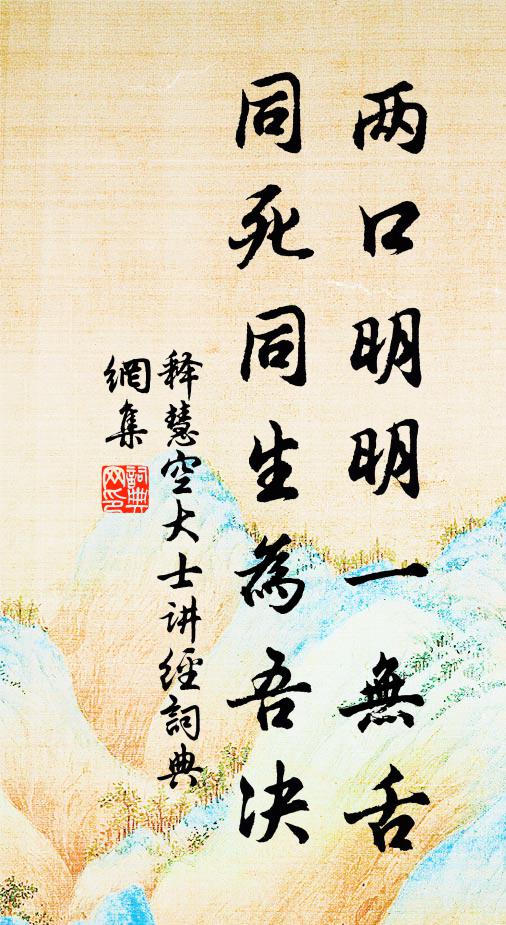 两口明明一無舌
同死同生為吾决
释慧空大士讲經詞典
網集
詞典
网印